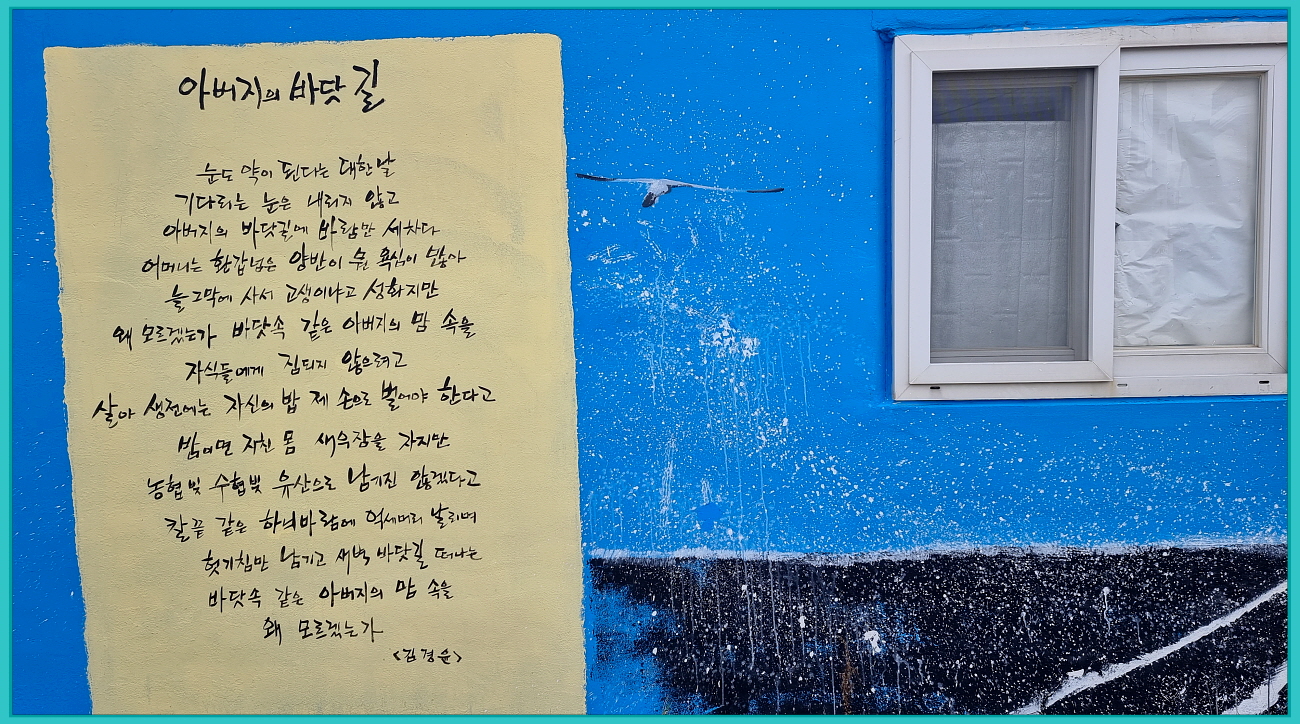 아버지의 바닷길
눈도 약이 된다는 대한날
기다리는 눈은 내리지 않고
아버지의 바닷길에 바람만 세차다
어머니는 환갑넘은 양반이 욕심이 많아
늘그막에 사서 고생이냐고 성화지만
왜 모르겠는가 바닷속 같은 아버지의 맘 속을
자식들에게 짐되지 않으려고
살아 생전에는 자신의 밥 제 손으로 벌어야 한다고
밤이면 지친 몸 새우잠을 자지만
농협빚 수협빚 유산으로 남기진 않겠다고
칼끝 같은 하늬바람에 억세머리 날리며
헛기침만 남기고 새벽 바닷길 떠나는
바닷속 같은 아버지의 맘 속을
왜 모르겠는가
<김경윤>